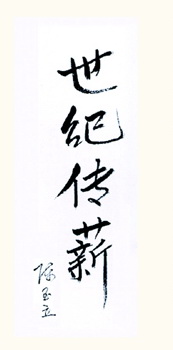 世纪传薪
陈至立